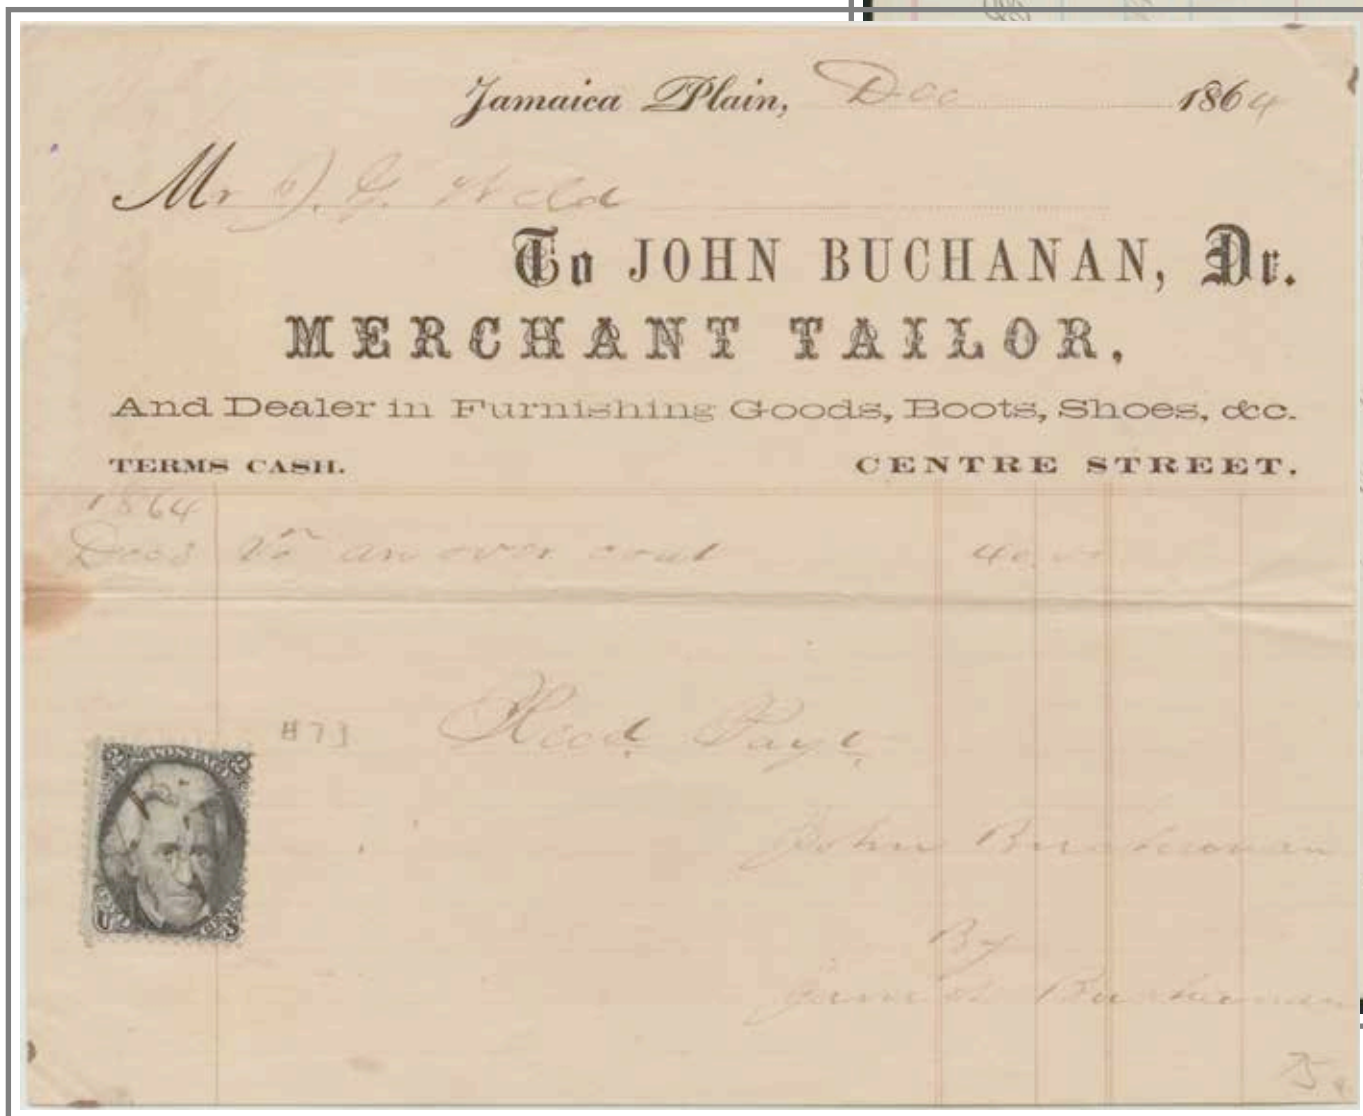 Jamaica Plain, Dec 1864
Mr J. G. Weld
To JOHN BUCHANAN, Dr.
MERCHANT TAILOR,
And Dealer in Furnishing Goods, Boots, Shoes, &c.
TERMS CASH. CENTRE STREET.
1864
To an over coat
#73 Recd. Payt.
John Buchanan
U S
By
Buchanan
75